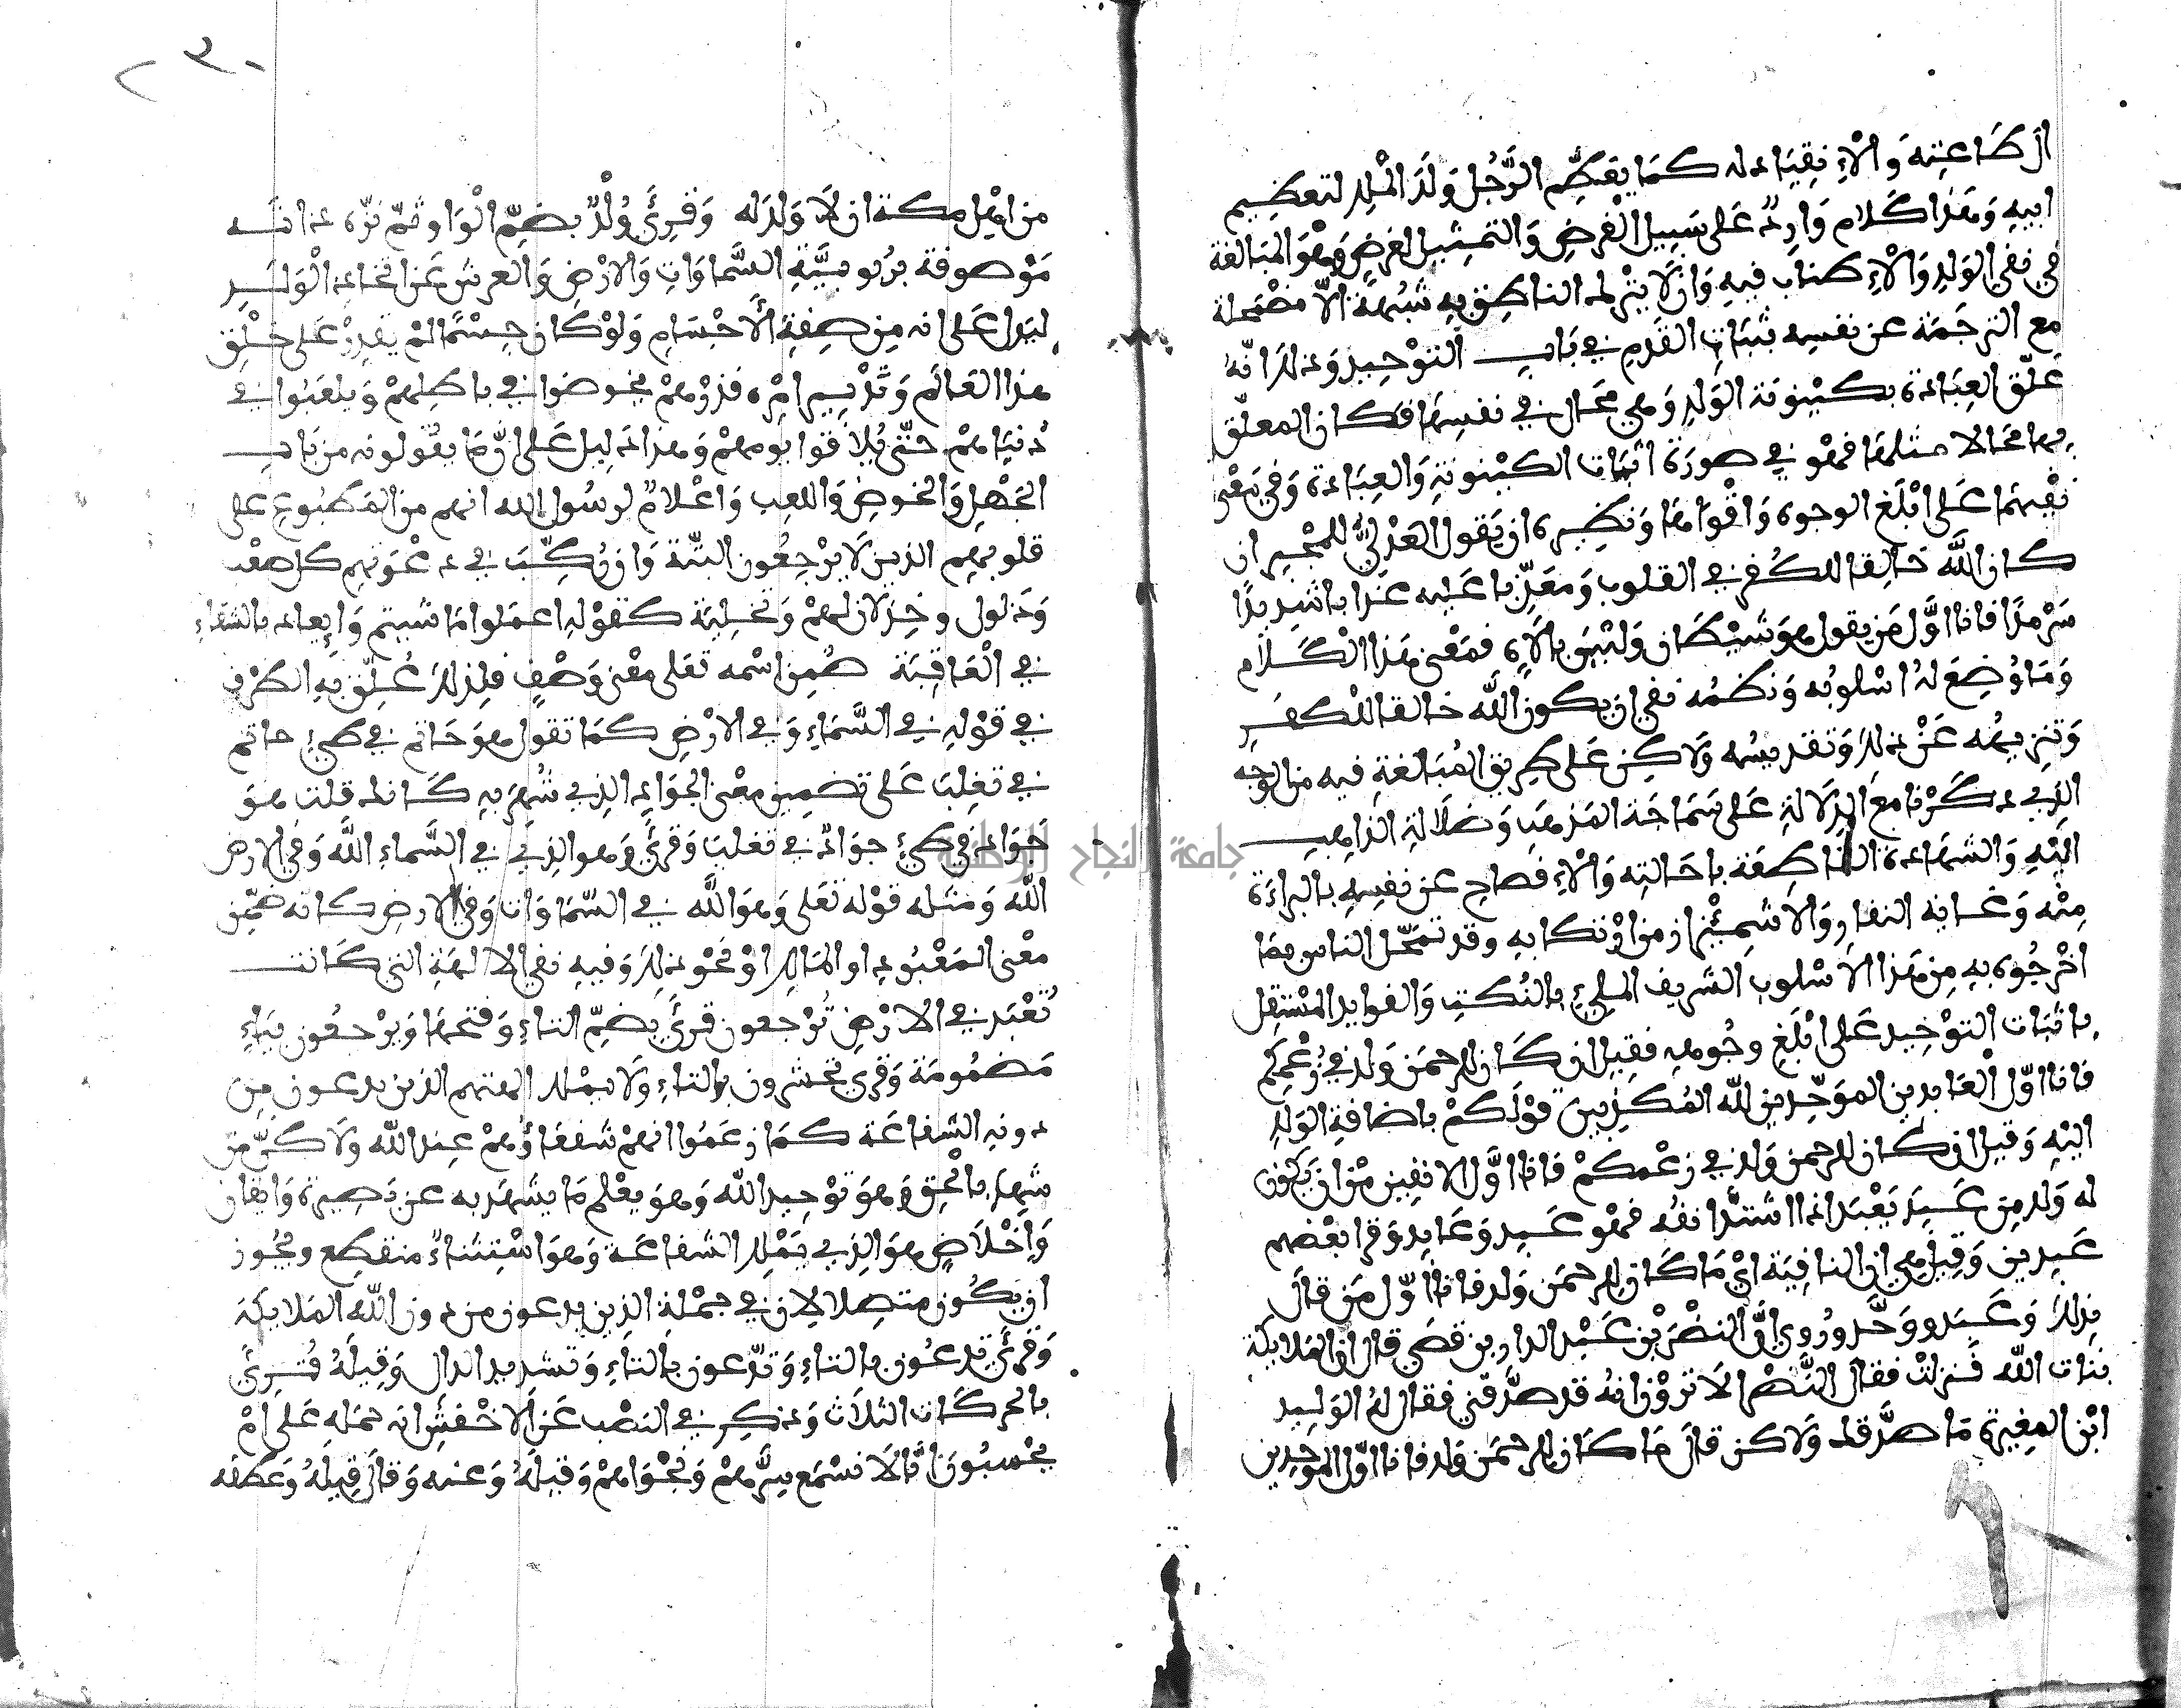 الى طاعته والانقياد له كما يعظم الرجل ولد الملك لتعظيم
ابيه وهذا كلام وارد على سبيل الفرض والتمثيل لغرض وهو المبالغة
في نفي الولد والاطناب فيه وان لا يترك الناطق به شبهة الا مضمحلة
مع الترجمة عن نفسه بثبات القدم في باب التوحيد وذلك انه
علق العبادة بكينونة الولد وهي محال في نفسها فكان المعلق
بها محالا مثلها فهو في صورة اثبات الكينونة والعبادة وفي معنى
نفيهما على ابلغ الوجوه واقواها ونظيره ان يقول العدلي للمجبر ان
كان الله خالقا للكفر في القلوب ومعذبا عليه عذابا شديدا
سرمدا فانا اول من يقول هو شيطان وليس بالاه فمعنى هذا الكلام
وما وضع له اسلوبه ونظمه نفي ان يكون الله خالقا للكفر
وتنزيهه عن ذلك وتقديسه ولاكن على طريق المبالغة فيه من الوجه
الذي ذكرنا مع الدلالة على سماجة المذهب وضلالة الذاهب
اليه والشهادة الناطقة باحالته والافصاح عن نفسه بالبراءة
منه وغاية النفار والاشمئزاز من ارتكابه وقد تمحل الناس بما
اخرجوه به من هذا الاسلوب الشريف الملئ بالنكت والفوايد المستقل
باثبات التوحيد على ابلغ وجوهه فقيل ان كان للرحمن ولد في زعمكم
فانا اول العابدين الموحدين لله المكذبين قولكم باضافة الولد
اليه وقيل ان كان للرحمن ولد في زعمكم فانا اول الانفين من ان يكون
له ولد من عبد يعبد اذا اشتد انفه فهو عبد وعابد وقرا بعضهم
عبدين وقيل هي ان النافية اي ما كان للرحمن ولد فانا اول من قال
بذلك وعبد ووحد وروي ان النضر بن عبد الدار بن قصي قال ان الملايكة
بنات الله فنزلت فقال النضر الا ترون انه قد صدقني فقال له الوليد
ابن المغيرة ما صدقك ولاكن قال ما كان للرحمن ولد فانا اول الموحدين
من اهل مكة ان لا ولد له وقرئ ولد بضم الواو ثم نزه ذاته
موصوفة بربوبية السماوات والارض والعرش عن اتخاذ الولد
ليدل على انه من صفة الاجسام ولو كان جسما لم يقدر على خلق
هذا العالم وتدبير امره فذرهم يخوضوا في باطلهم ويلعبوا في
دنياهم حتى يلاقوا يومهم وهذا دليل على ان ما يقولونه من باب
الجهل والخوض واللعب واعلام لرسول الله انهم من المطبوع على
قلوبهم الذين لا يرجعون البتة وان ركب في دعوتهم كل صعب
وذلول وخذلان لهم وتخلية كقوله اعملوا ما شيتم وايعاد بالشقاء
في العاقبة ضمن اسمه تعلى معنى وصف فلذلك علق به الظرف
في قوله في السماء وفي الارض كما تقول هو حاتم في طيئ حاتم
في تغلب على تضمين معنى الجواد الذي شهر به كانك قلت هو
جواد في طيئ جواد في تغلب وقرئ وهو الذي في السماء الله وفي الارض
الله ومثله قوله تعلى وهو الله في السماوات وفي الارض كانه ضمن
معنى المعبود او المالك او نحو ذلك وفيه نفي الالهة التي كانت
تعبد في الارض ترجعون قرئ بضم التاء وفتحها ويرجعون بياء
مضمومة وقرئ تحشرون بالتاء ولا يملك الهتهم الذين يدعون من
دونه الشفاعة كما زعموا انهم شفعاؤهم عند الله ولاكن من
شهد بالحق وهو توحيد الله وهو يعلم ما يشهد به عن بصيرة وايقان
واخلاص هو الذي يملك الشفاعة وهو استثناء منقطع ويجوز
ان يكون متصلا لان في جملة الذين يدعون من دون الله الملايكة
وقرئ تدعون بالتاء وتدعون بالتاء وتشديد الدال وقيله قرئ
بالحركات الثلاث وذكر في النصب عن الاخفش انه حمله على ام
يحسبون انا لا نسمع سرهم ونجواهم وقيله وعنه وقال قيله وعطفه
جامعة النجاح الوطنية